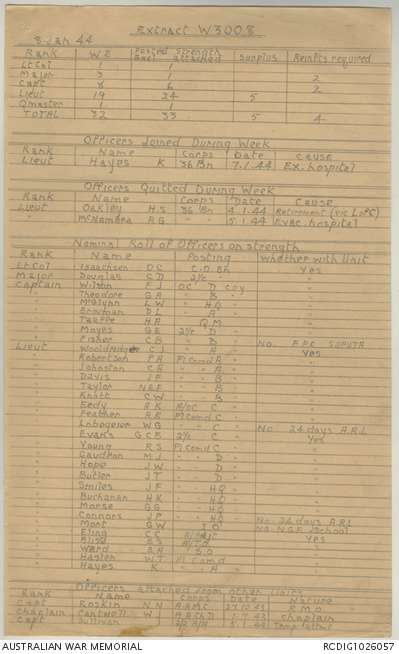 Extract W3008
8 Jan 44
Rank W.E. Posted Strength Excl attached Surplus Reinfts required
Lt Col 1 1
Major 3 1 2
Capt 8 6 2
Lieut 19 24 5
Qmaster 1 1
TOTAL 32 33 5 4
Officers Joined During Week
Rank Name Corps Date Cause
Lieut Hayes K 36 Bn 7.1.44 Ex. hospital
Officers Quitted During Week
Rank Name Corps Date Cause
Lieut Oakley H S 36 Bn 4.1.44 Retirement (Vic L of C)
" McNamara R G " " 5.1.44 Evac. hospital
Nominal Roll of Officers on strength
Rank Name Posting Whether with Unit
Lt Col Isaachsen O C C.O. Bn Yes
Major Douglas G D 2i/c "
Captain Wilson F J OC D Coy "
" Theodore G A " B " "
" McGlynn L W " HQ "
" Brodman D L " A "
" Taaffe H A Q.M "
" Mayes G E 2i/c D "
" Fisher C B " B No.
Lieut Wooldridge C J " A Yes
" Robertson P A Pl Comd A "
" Johnston C A " " A "
" Davis J F " " B "
" Taylor N E F " " B "
" Knott C W " " B "
" Eedy A K C "
" Feather A R Pl Comd C "
" W G " " C No 24 days A.R.L
" Evans G C E 2i/c C Yes
" Young R S Pl Comd C "
" Gaudron M J " " D "
" Hope J W " " D "
" Butler J T " " D "
" Smiles J F " " HQ "
" Buchanan H K " " HQ "
" Morse G G " " HQ "
" Connors J P " " HQ No 24 days A.R.L
" Mort G W I O No School
" Eling C E Yes
" R S "
" Ward R A S.O "
" W T Pl Comd "
" Hayes K " " A "
Officers attached from other units
Rank Name Corps Date Nature
Capt Roskin N N A.A.M.C. R.M.O.
Chaplain Cantwell W Chaplain
Capt Sullivan 5.1.44
AUSTRALIAN WAR MEMORIAL RCDIG1026057